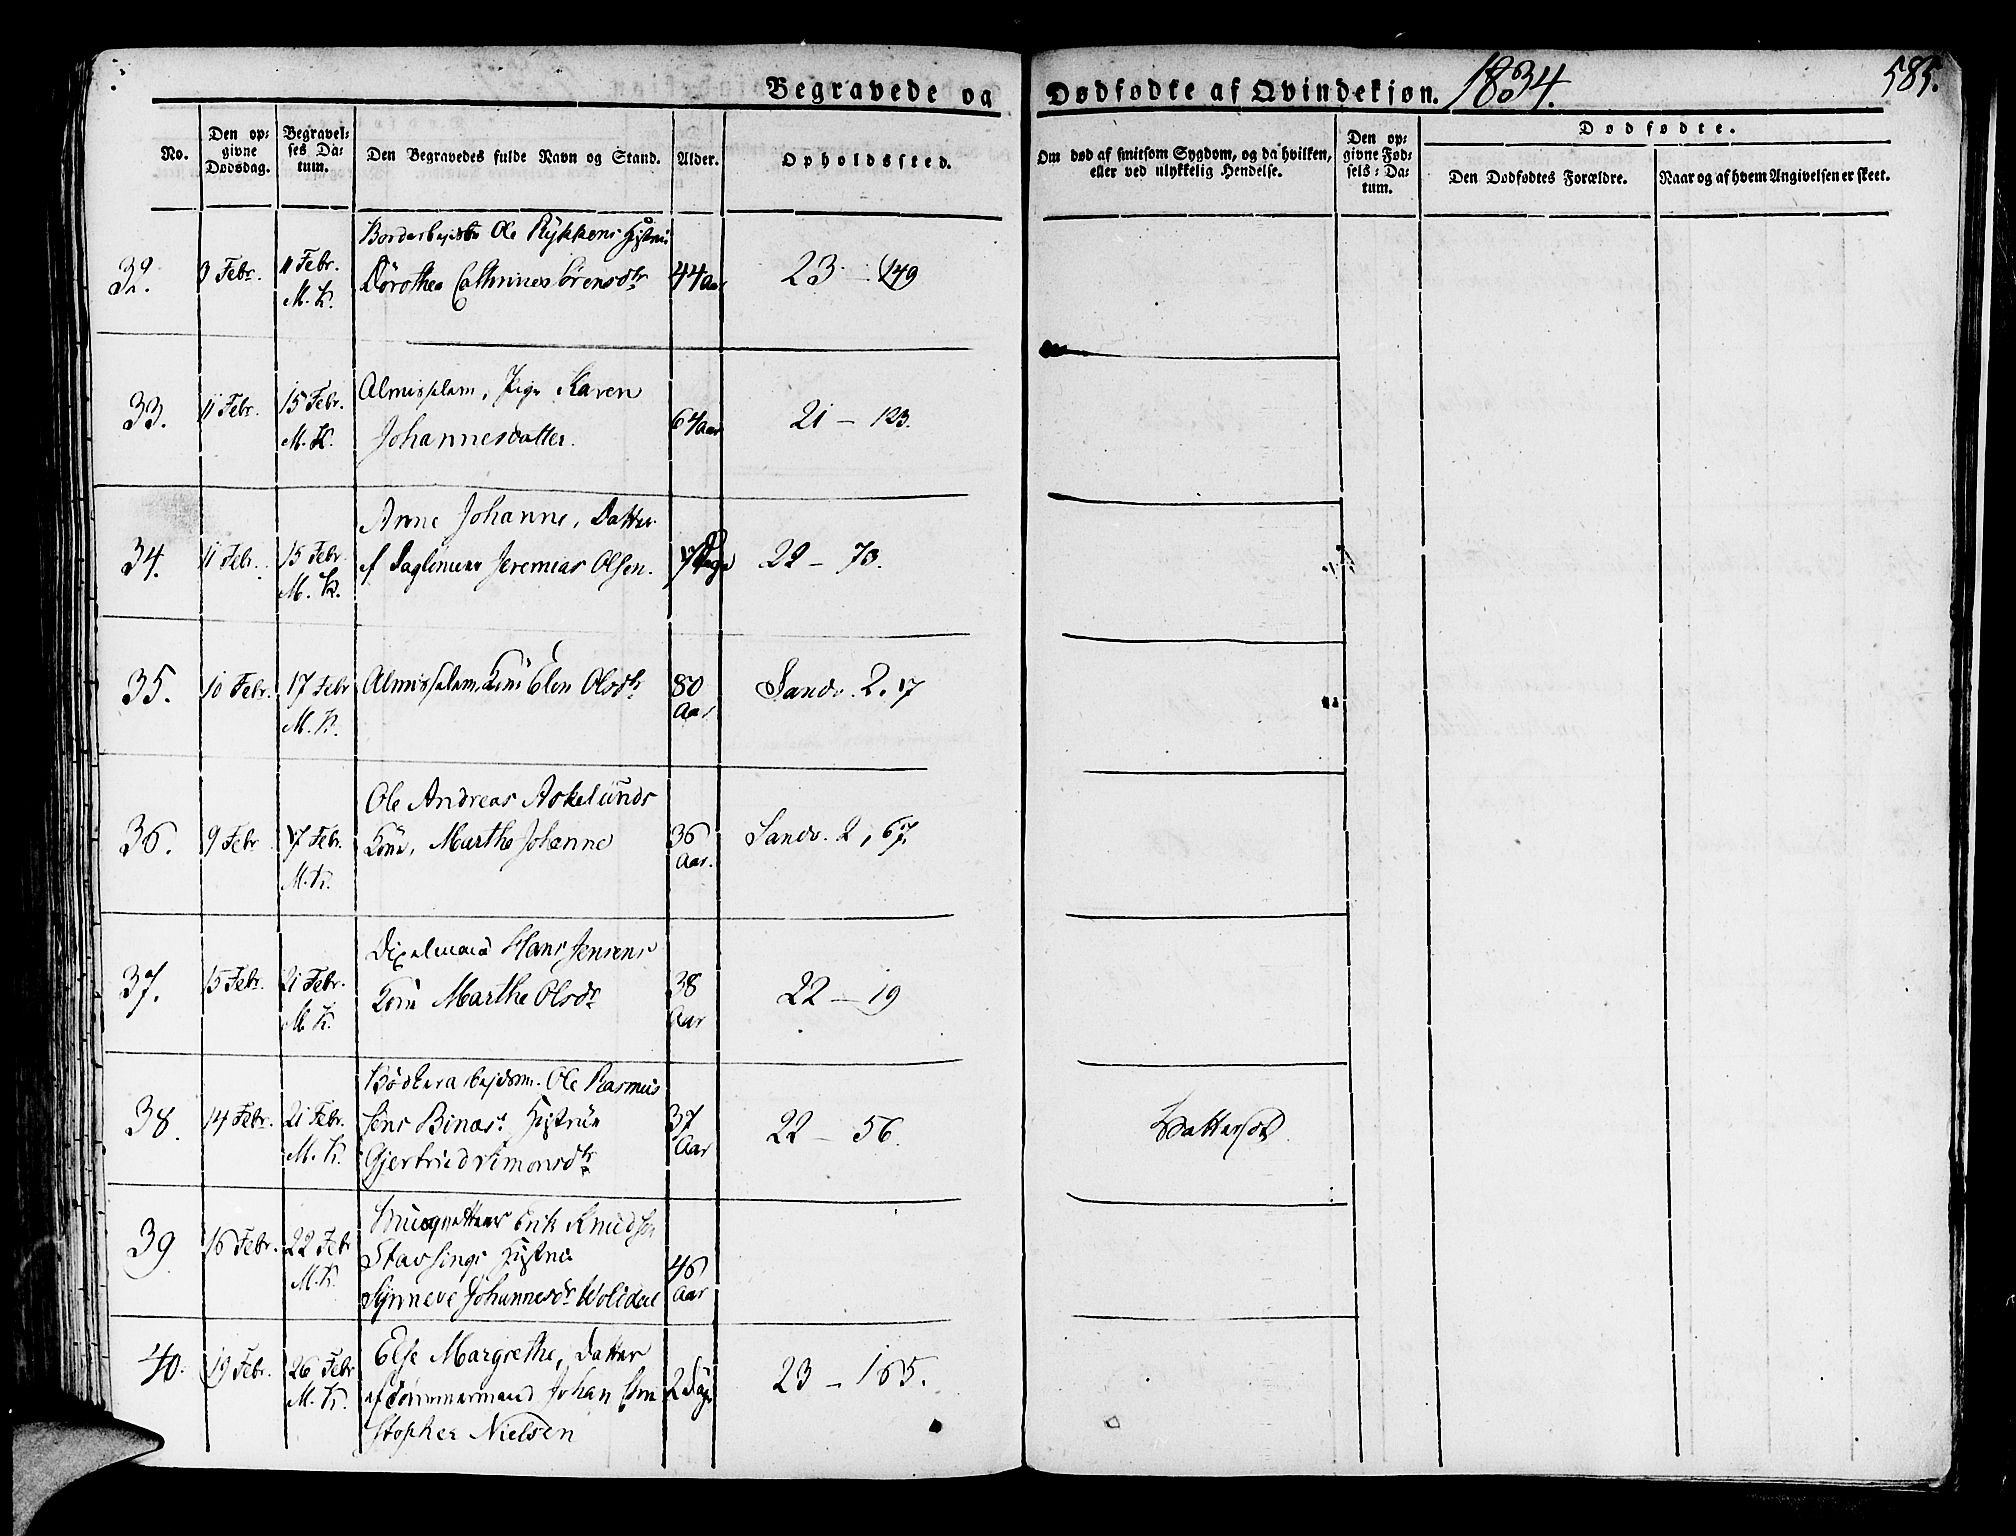 Begravede og Dødfødte af Qvindekjøn. 1834. 585.
No.
Den opgivne Dødsdag.
Begravelses Datum.
Den Begravedes fulde Navn og Stand.
Alder.
Opholdssted.
Om død af smitsom Sygdom, og da hvilken, eller ved ulykkelig Hendelse.
Den opgivne Fødsels-Datum.
Dødfødte.
Den Dødfødtes Forældre.
Naar og af hvem Angivelsen er skeet.
32. 9 Febr. 11 Febr. M. K.
Ole Rykkens
Dorothea Sørensdtr 44 Aar 23 - 149
33. 11 Febr. 15 Febr. M. K.
Almisselem, Pige Karen
Johannesdatter. 64 Aar 21 - 123.
34. 11 Febr. 15 Febr. M. K.
Anne Johanne, Datter
af Jeremias Olsen. 22 - 73.
35. 10 Febr. 17 Febr M. K.
Almisselem, Elen Olsdtr 80 Aar Sandv. 2. 17
36. 9 Febr 17 Febr. M. K.
Ole Andreas Askelunds
Kone, Marthe Johanne 36 Aar. Sandv. 2, 67.
37. 15 Febr. 21 Febr. M. K.
Hans Jensens
Kone Marthe Olsdr 38 Aar 22 - 19
38. 14 Febr. 21 Febr. M. K.
Ole Rasmus
sens Hustrue
Gjertrud Simonsdtr 37 Aar 22 - 56.
39 16 Febr. 22 Febr M. K.
Erik Knudsen
Hustrue
Synneve Johannesdr 46 Aar
40. 19 Febr. 26 Febr M. K.
Else Margrethe, Datter
af Tømmermand Johan Chri
stopher Nielsen 2 Dage 23 - 165.